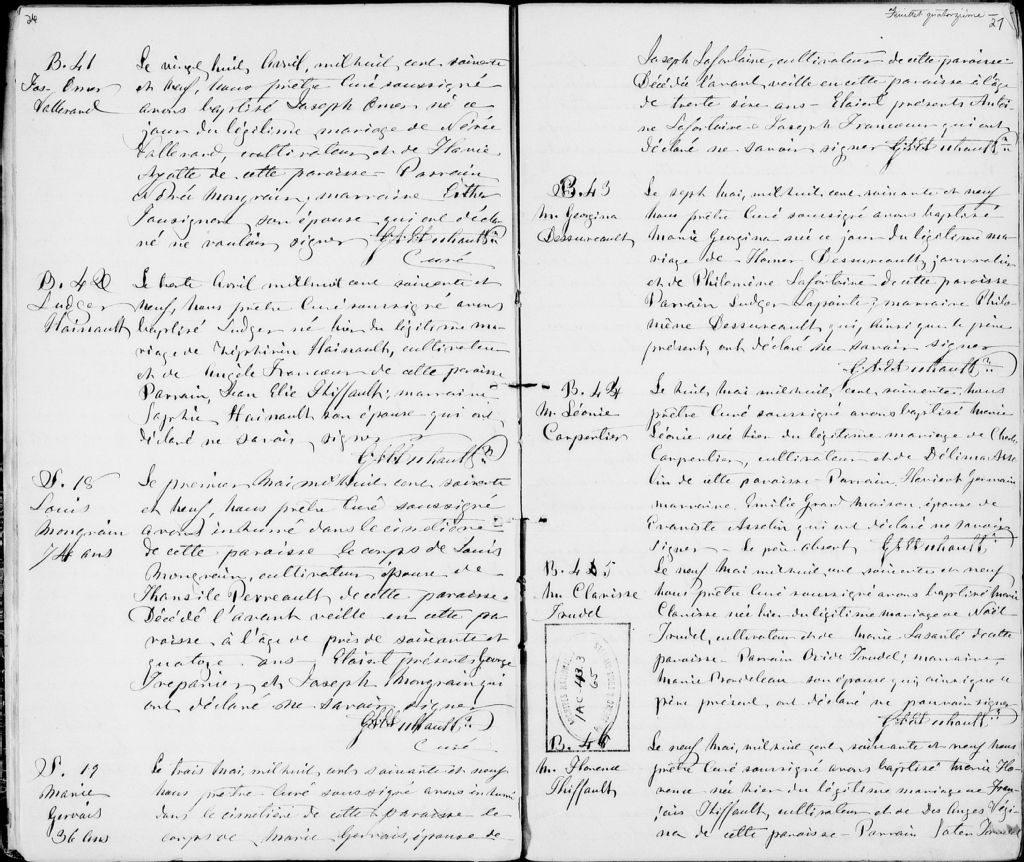 26
B. 41
Jos. Omer
Vallerand
Le vingt huit Avril, mil huit cent soixante
et neuf, nous prêtre Curé soussigné
avons baptisé Joseph Omer né ce
jour du légitime mariage de Nérée
Vallerand, cultivateur et de Flavie
Ayotte de cette paroisse - Parrain
Nérée Mongrain, marraine Esther
son épouse qui ont décla-
ré ne vouloir signer
Curé
B. 42
Ludger
Hainault
Le trente Avril mil huit cent soixante et
neuf, nous prêtre Curé soussigné avons
baptisé Ludger né hier du légitime ma-
riage de Zéphirin Hainault, cultivateur
et de Angèle Francoeur de cette paroisse
Parrain, Jean Elie Thiffault; marraine
Sophie Hainault son épouse qui ont
déclaré ne savoir signer
S. 18
Louis
Mongrain
74 ans
Le premier Mai, mil huit cent soixante
et neuf, nous prêtre Curé soussigné
avons inhumé dans le cimetière
de cette paroisse le corps de Louis
Mongrain, cultivateur époux de
Tharsile Perreault de cette paroisse.
Décédé l'avant veille en cette pa-
roisse, à l'âge de près de soixante et
quatorze ans - Etaient présents George
Trepanier et Joseph Mongrain qui
ont déclaré ne savoir signer
Curé
S. 19
Marie
Gervais
36 ans
Le trois Mai, mil huit cent soixante et neuf
nous prêtre Curé soussigné avons inhumé
dans le cimetière de cette paroisse le
corps de Marie Gervais, épouse de
Feuillet quatorzième
27
Joseph Lafontaine, cultivateur de cette paroisse
Décédée l'avant veille en cette paroisse à l'âge
de trente six ans - Etaient présents Antoi-
ne Lafontaine & Joseph Francoeur qui ont
déclaré ne savoir signer
B. 43
M. Georgina
Dessureault
Le sept Mai, mil huit cent soixante et neuf
nous prêtre Curé soussigné avons baptisé
Marie Georgina née ce jour du légitime ma-
riage de Homer Dessureault, journalier
et de Philomène Lafontaine de cette paroisse
Parrain Ludger Lapointe; marraine Philo-
mène Dessureault, qui, ainsi que le père
présent, ont déclaré ne savoir signer
B. 44
M. Léonie
Carpentier
Le huit, Mai mil huit cent soixante nous
prêtre Curé soussigné avons baptisé Marie
Léonie née hier du légitime mariage de Charles
Carpentier, cultivateur et de Délima Asse-
lin de cette paroisse - Parrain, Flavient Germain
marraine, Emilie Grand'maison, épouse de
Evariste Asselin qui ont déclaré ne savoir
signer - Le père absent
B. 45
M. Clarisse
Trudel
Le neuf Mai mil huit cent soixante et neuf
nous prêtre Curé soussigné avons baptisé Marie
Clarisse née hier du légitime mariage de Naël
Trudel, cultivateur et de Marie Lasanté de cette
paroisse - Parrain Ovide Trudel; marraine,
Marie Bordeleau son épouse qui, ainsi que le
père présent, ont déclaré ne pouvoir signer
B. 46
M. Florence
Thiffault
Le neuf Mai, mil huit cent, soixante et neuf nous
prêtre Curé soussigné avons baptisé Marie Flo-
rence née hier du légitime mariage de Fran-
çois Thiffault, cultivateur et de Des Anges Vézi-
na de cette paroisse - Parrain